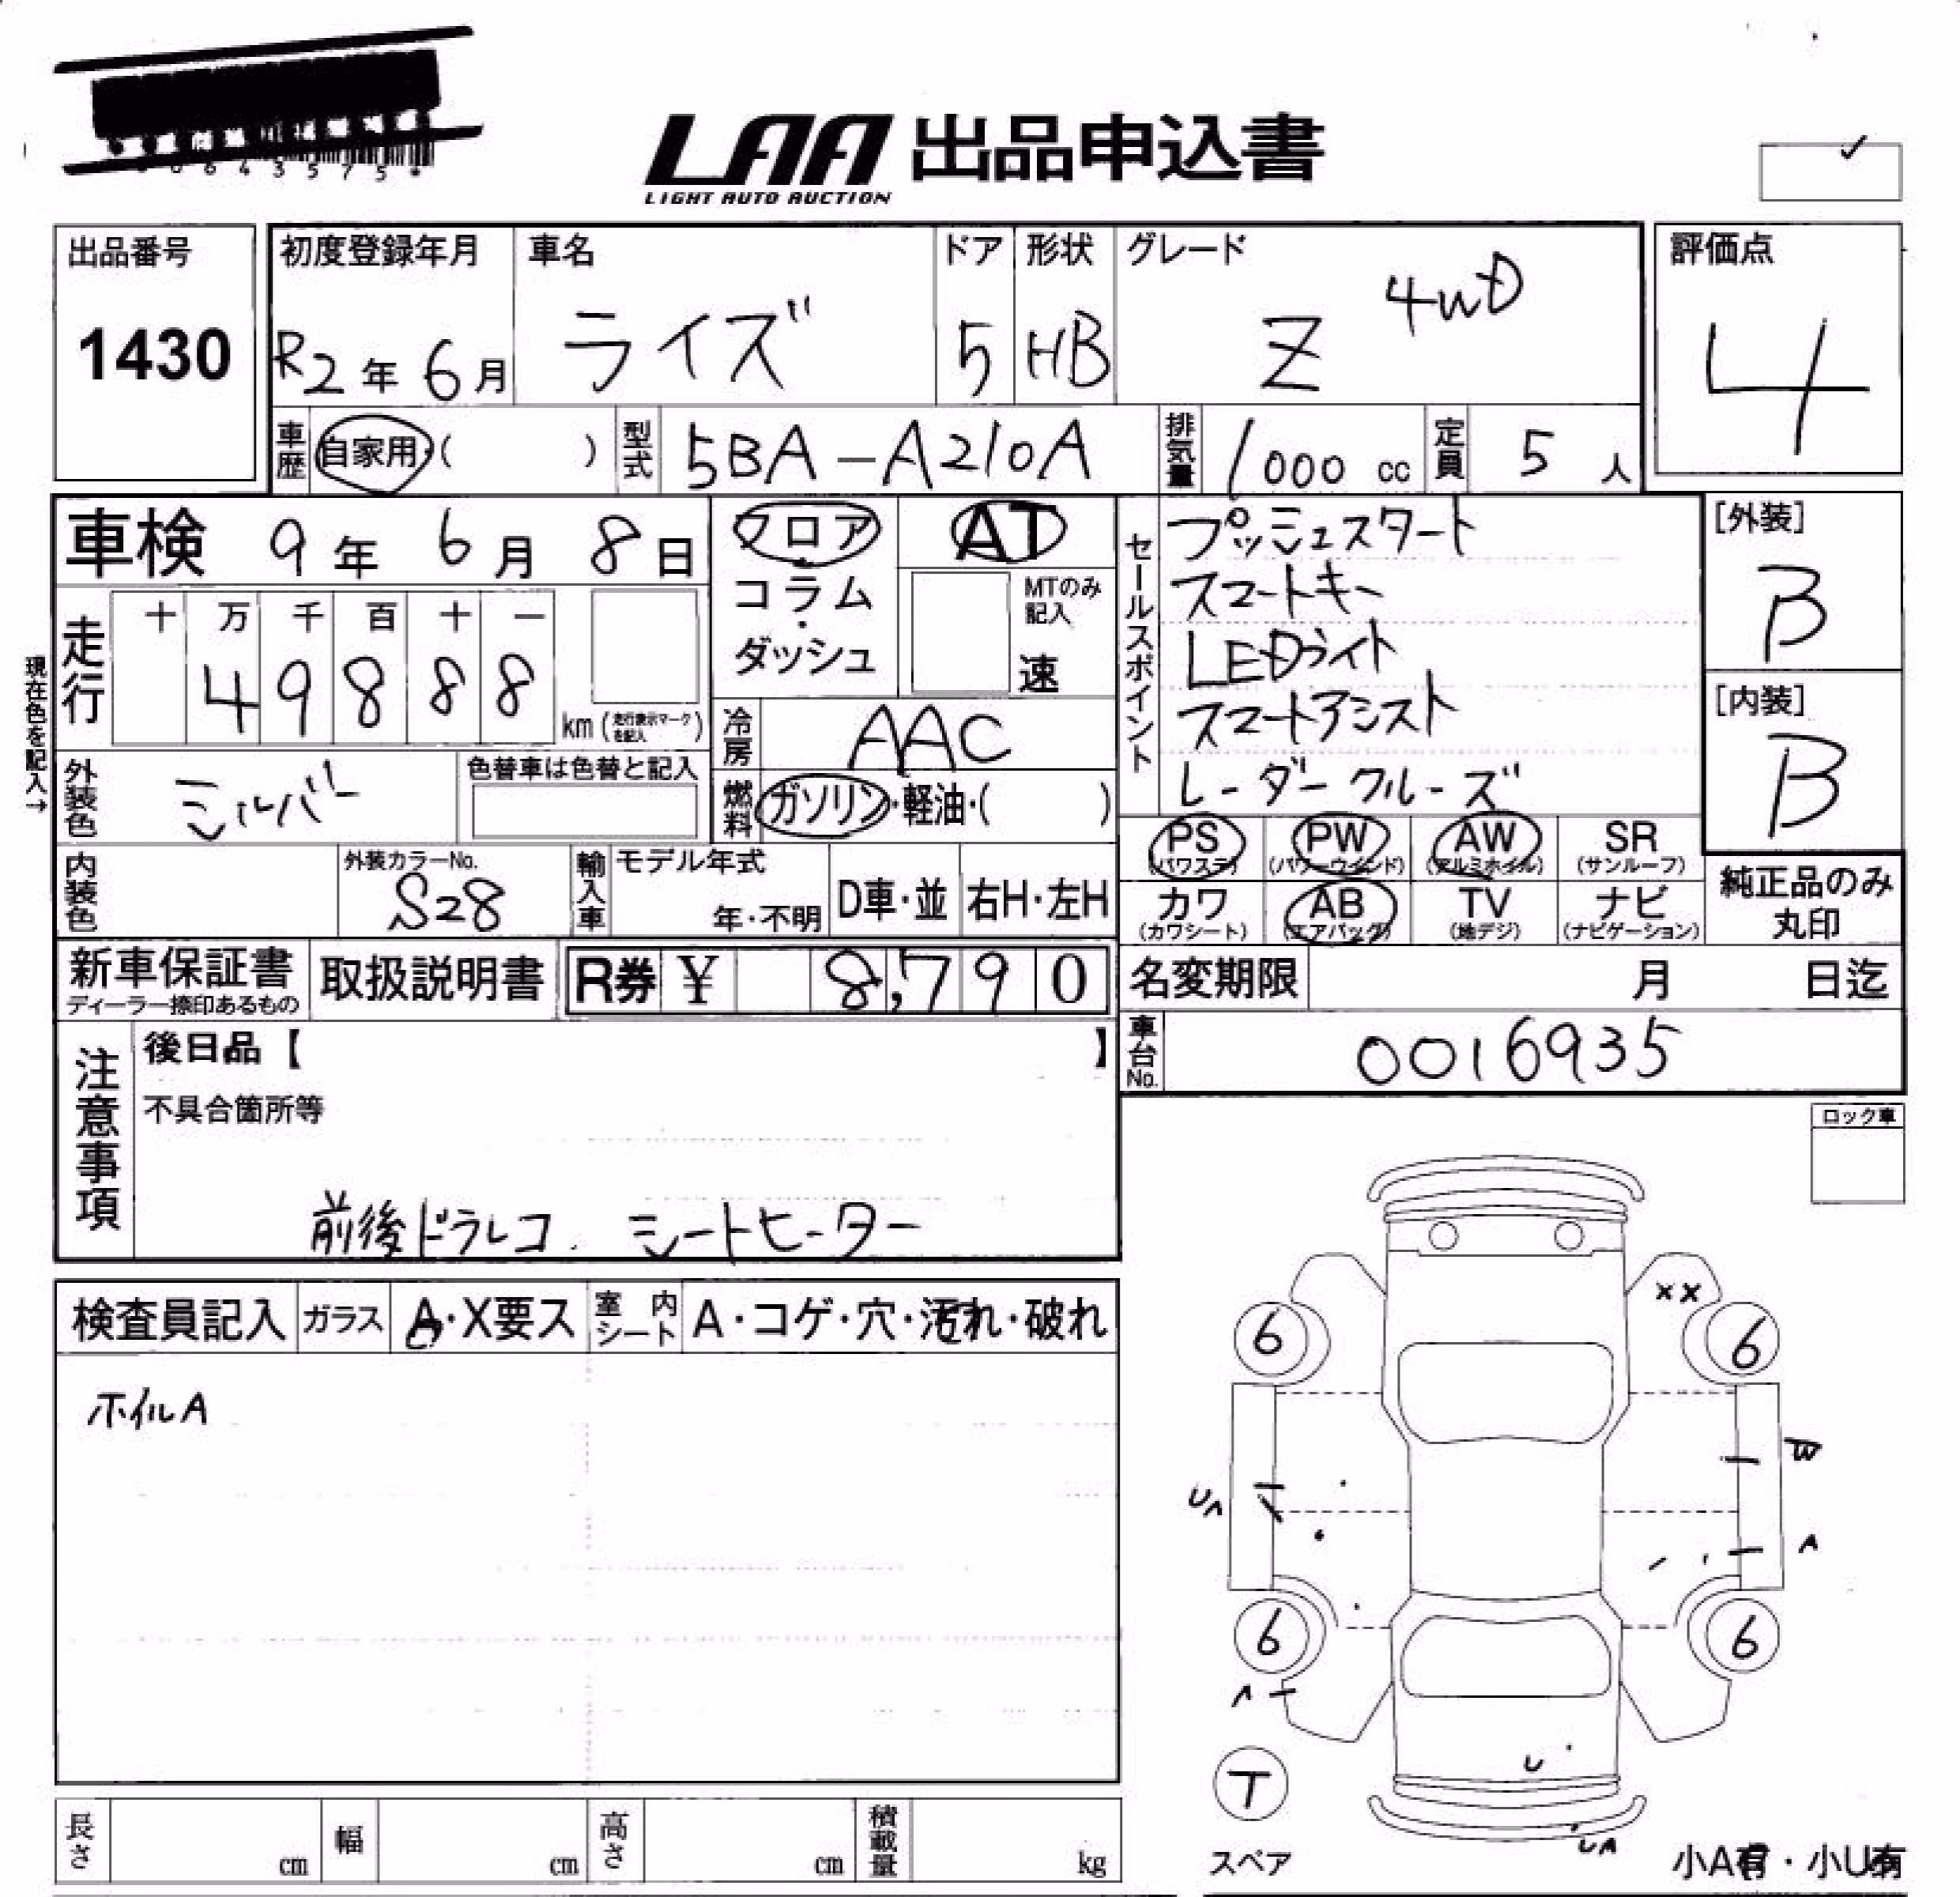 LAA 出品申込書
LIGHT AUTO AUCTION
出品番号
1430
初度登録年月
R2年6月
車名
ライズ
ドア
5
形状
HB
グレード
Z 4WD
評価点
4
車歴
自家用・( )
型式
5BA-A210A
排気量
1000 cc
定員
5人
車検 9年6月8日
フロア・コラム・ダッシュ
AT
MTのみ記入
速
セールスポイント
プッシュスタート
スマートキー
LEDライト
スマートアシスト
レーダークルーズ
[外装]
B
[内装]
B
現在色を記入→
走行
十 万 千 百 十 一
4 9 8 8 8
km(走行表示マークを記入)
冷房
AAC
外装色
シルバー
色替車は色替と記入
燃料
ガソリン・軽油・( )
内装色
外装カラーNo.
S28
輸入車
モデル年式
年・不明
D車・並
右H・左H
PS (パワステ)
PW (パワーウインド)
AW (アルミホイル)
SR (サンルーフ)
カワ (カワシート)
AB (エアバッグ)
TV (地デジ)
ナビ (ナビゲーション)
純正品のみ丸印
新車保証書
ディーラー捺印あるもの
取扱説明書
R券 ¥ 8,790
名変期限 月 日迄
車台No.
0016935
注意事項
後日品【 】
不具合箇所等
前後ドラレコ. シートヒーター
ロック車
検査員記入
ガラス
A・X要ス
室内シート
A・コゲ・穴・汚れ・破れ
ホイルA
XX
6
6
W
UA
A
6
6
A
U
T
スペア
UA
小A有・小U有
長さ cm
幅 cm
高さ cm
積載量 kg